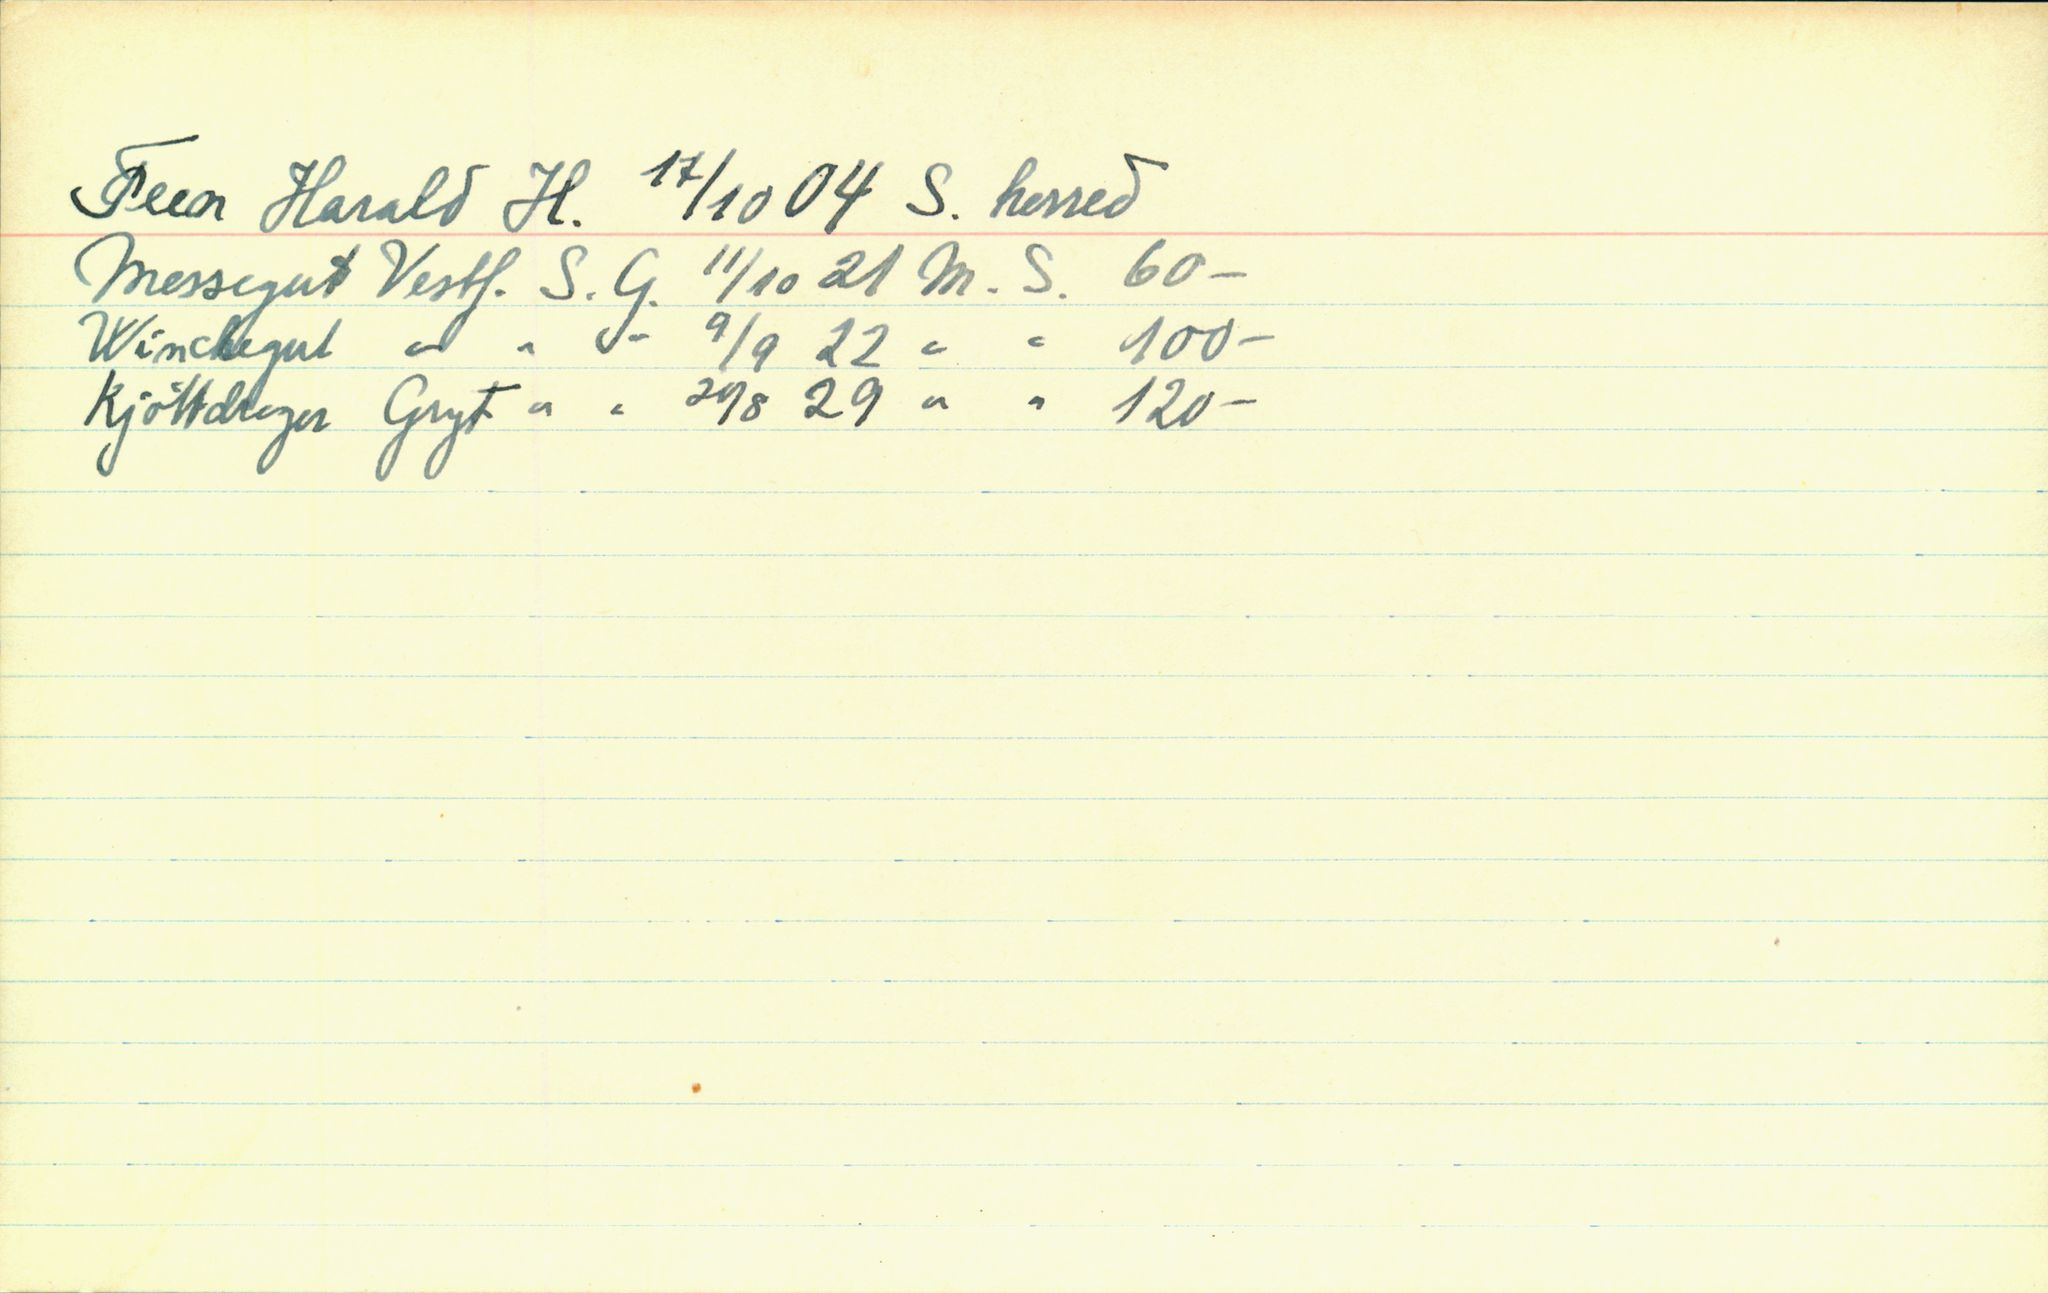 Feen Harald H. 17/10 04 S. herred
Messegut Vestf. S. G. 11/10 21 M. S. 60-
Winchegut " " " 9/9 22 " " 100-
Kjöttdrager Gryt " " 29/8 29 " " 120-